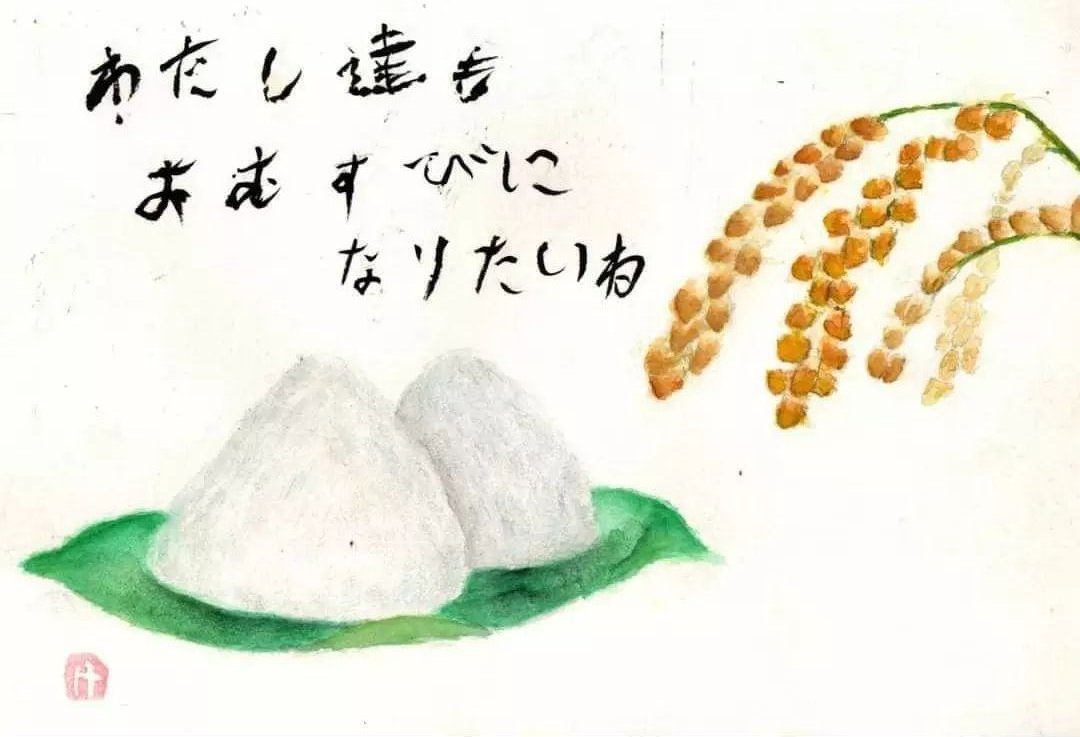 わたし達も
おむすびに
なりたいね